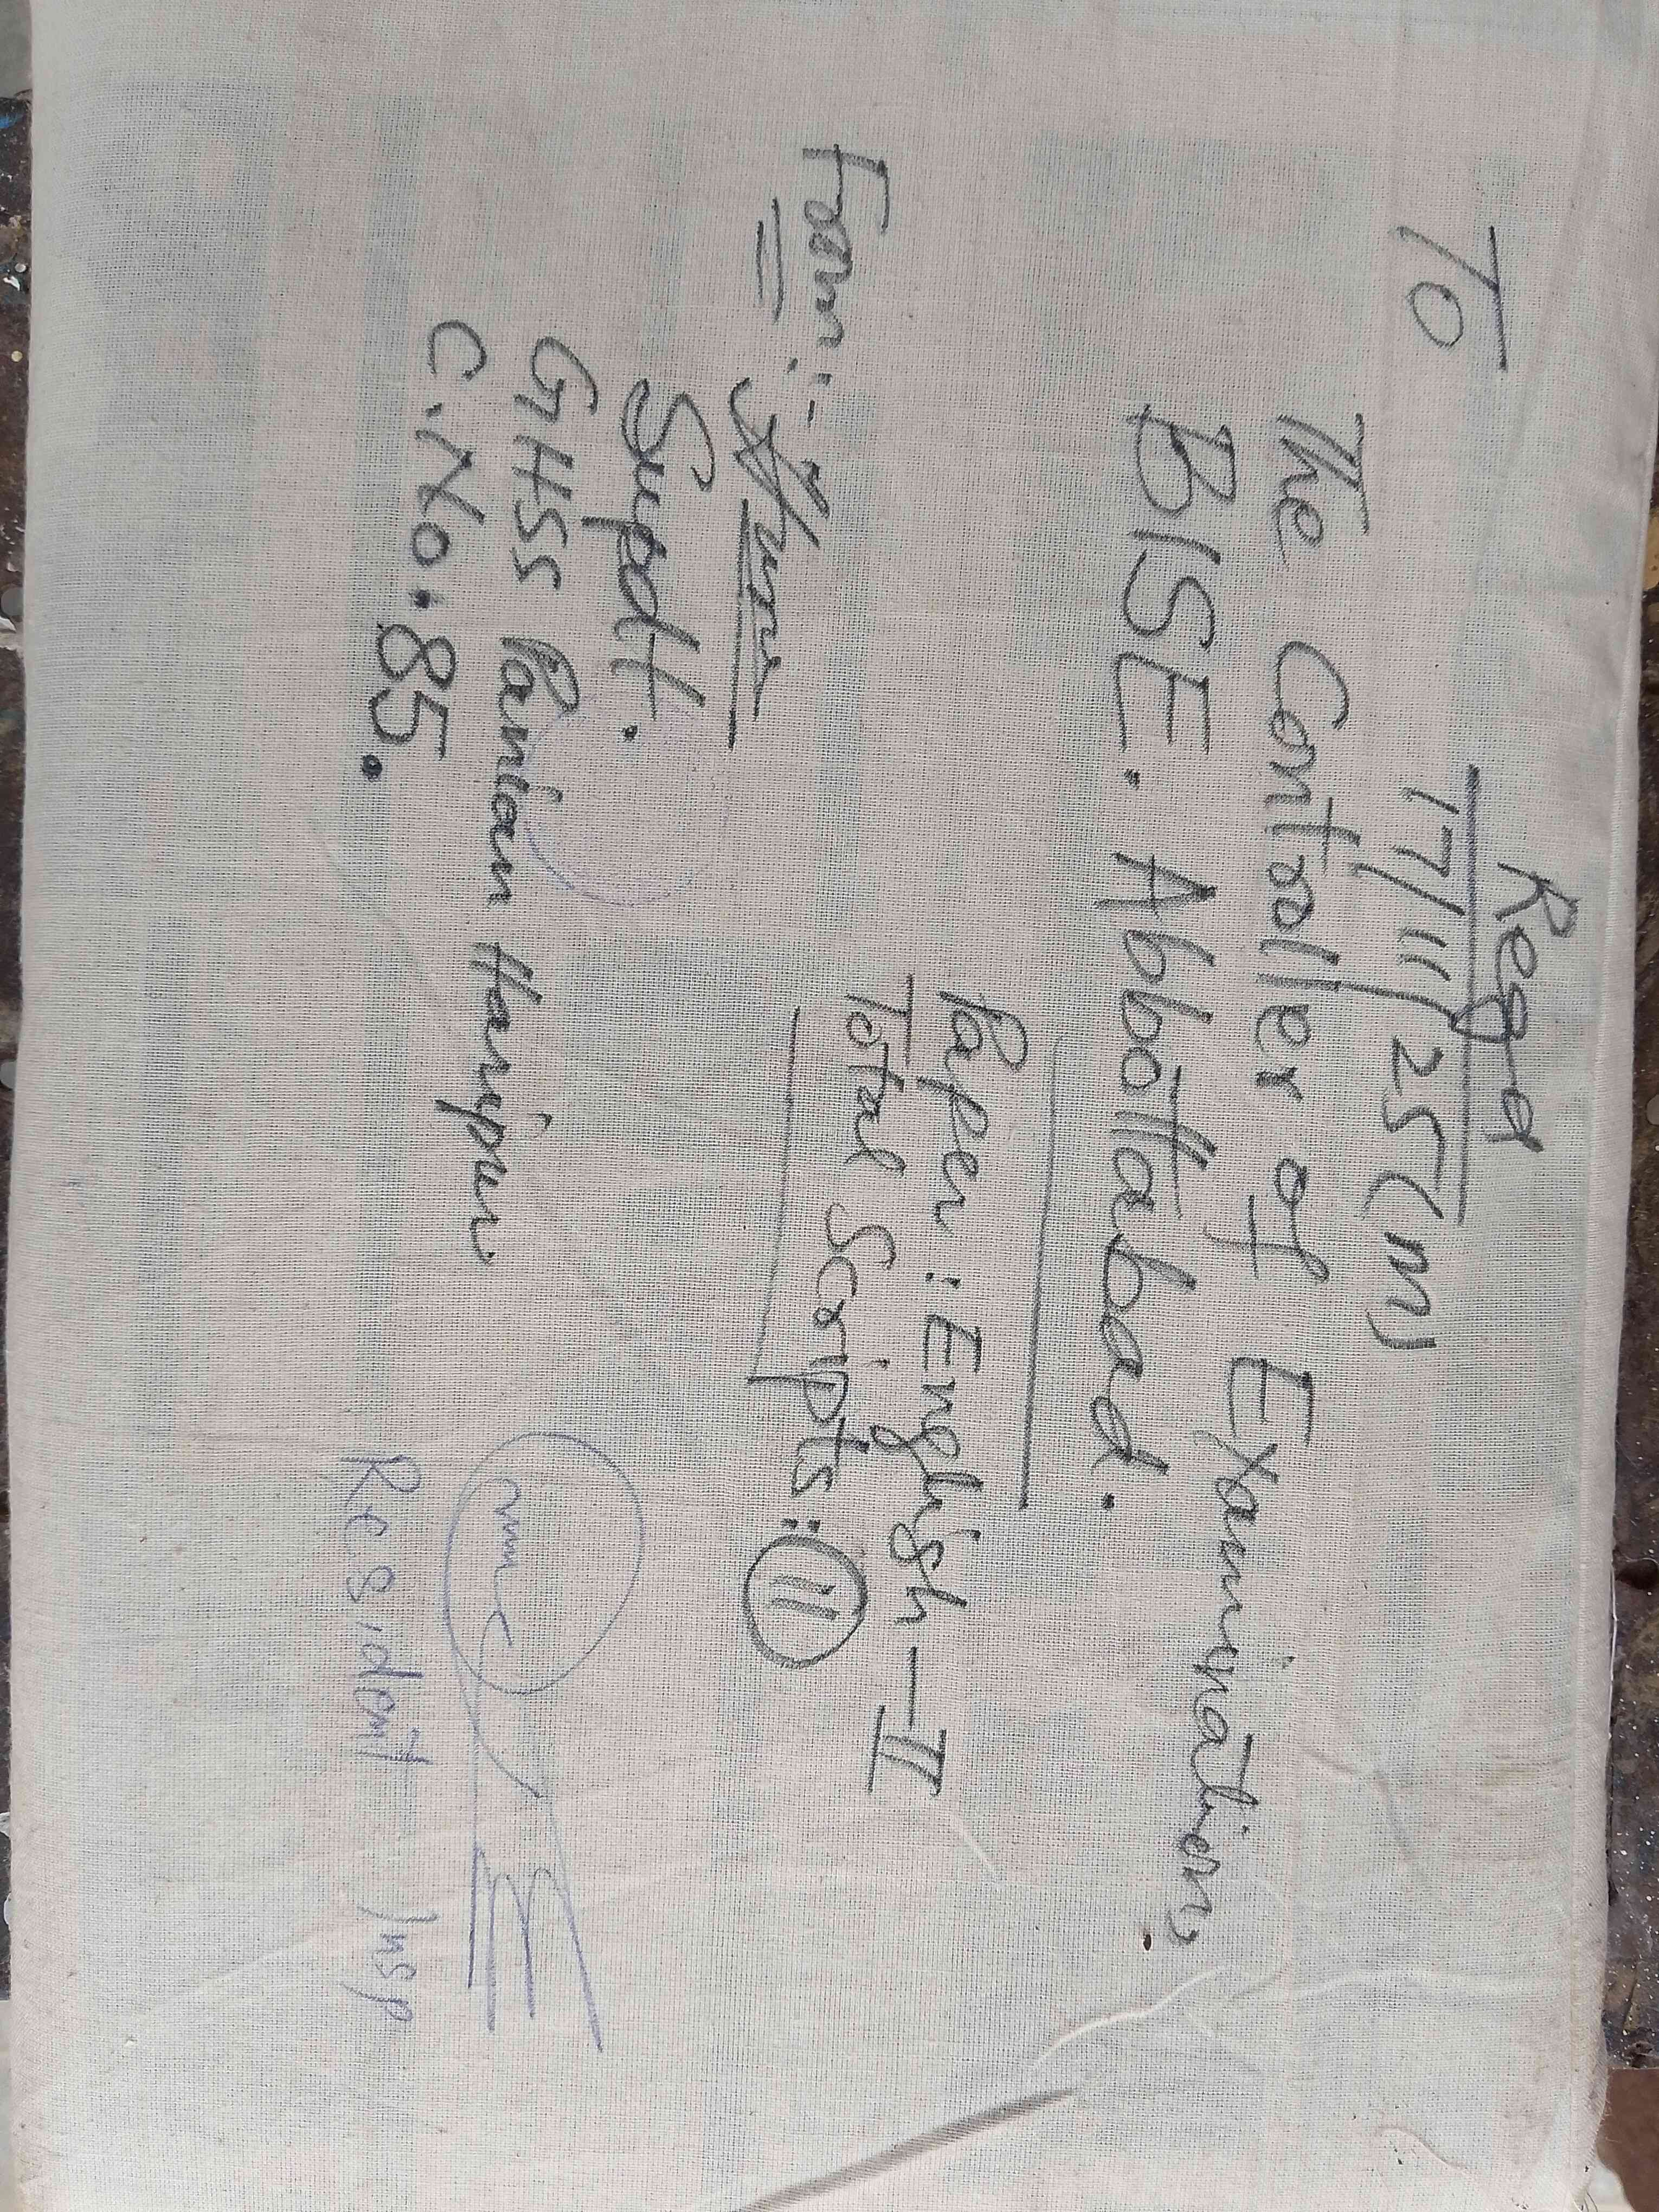 Regd
17/11/25(M)
TO
The Controller of Examinations,
BISE. Abbottabad.
Paper: English-II
Total Scripts: 11
From:-
Supdt.
GHSS Panian Haripur
C.No.85.
Resident Insp